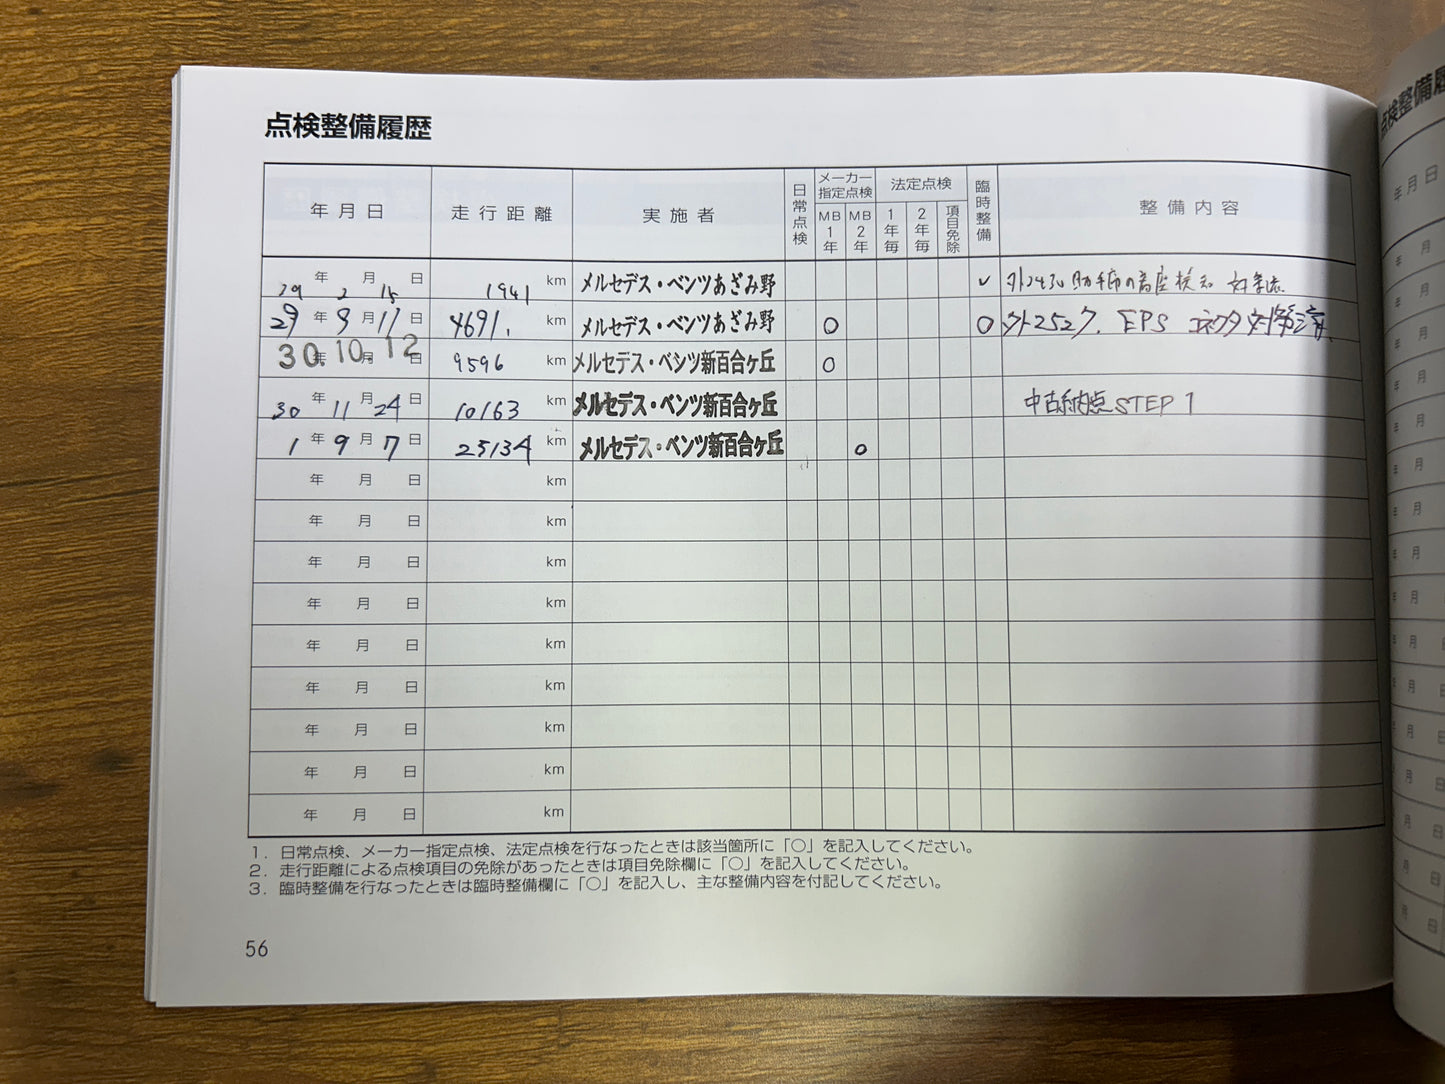 点検整備履歴
年月日 走行距離 実施者 日常点検 メーカー指定点検 MB1年 MB2年 法定点検 1年毎 2年毎 項目免除 臨時整備 整備内容
29年2月15日 1941km メルセデス・ベンツあざみ野 ✓
29年9月17日 4691.km メルセデス・ベンツあざみ野 ○ ○ 外2527. EPS コネクタ対策済
30.年10.月12日 9596km メルセデス・ベンツ新百合ヶ丘 ○
30年11月24日 10163km メルセデス・ベンツ新百合ヶ丘 中古納点 STEP1
1年9月7日 25134km メルセデス・ベンツ新百合ヶ丘 ○
年 月 日 km
年 月 日 km
年 月 日 km
年 月 日 km
年 月 日 km
年 月 日 km
年 月 日 km
年 月 日 km
年 月 日 km
1. 日常点検、メーカー指定点検、法定点検を行なったときは該当箇所に「○」を記入してください。
2. 走行距離による点検項目の免除があったときは項目免除欄に「○」を記入してください。
3. 臨時整備を行なったときは臨時整備欄に「○」を記入し、主な整備内容を付記してください。
56
点検整備履
年月日